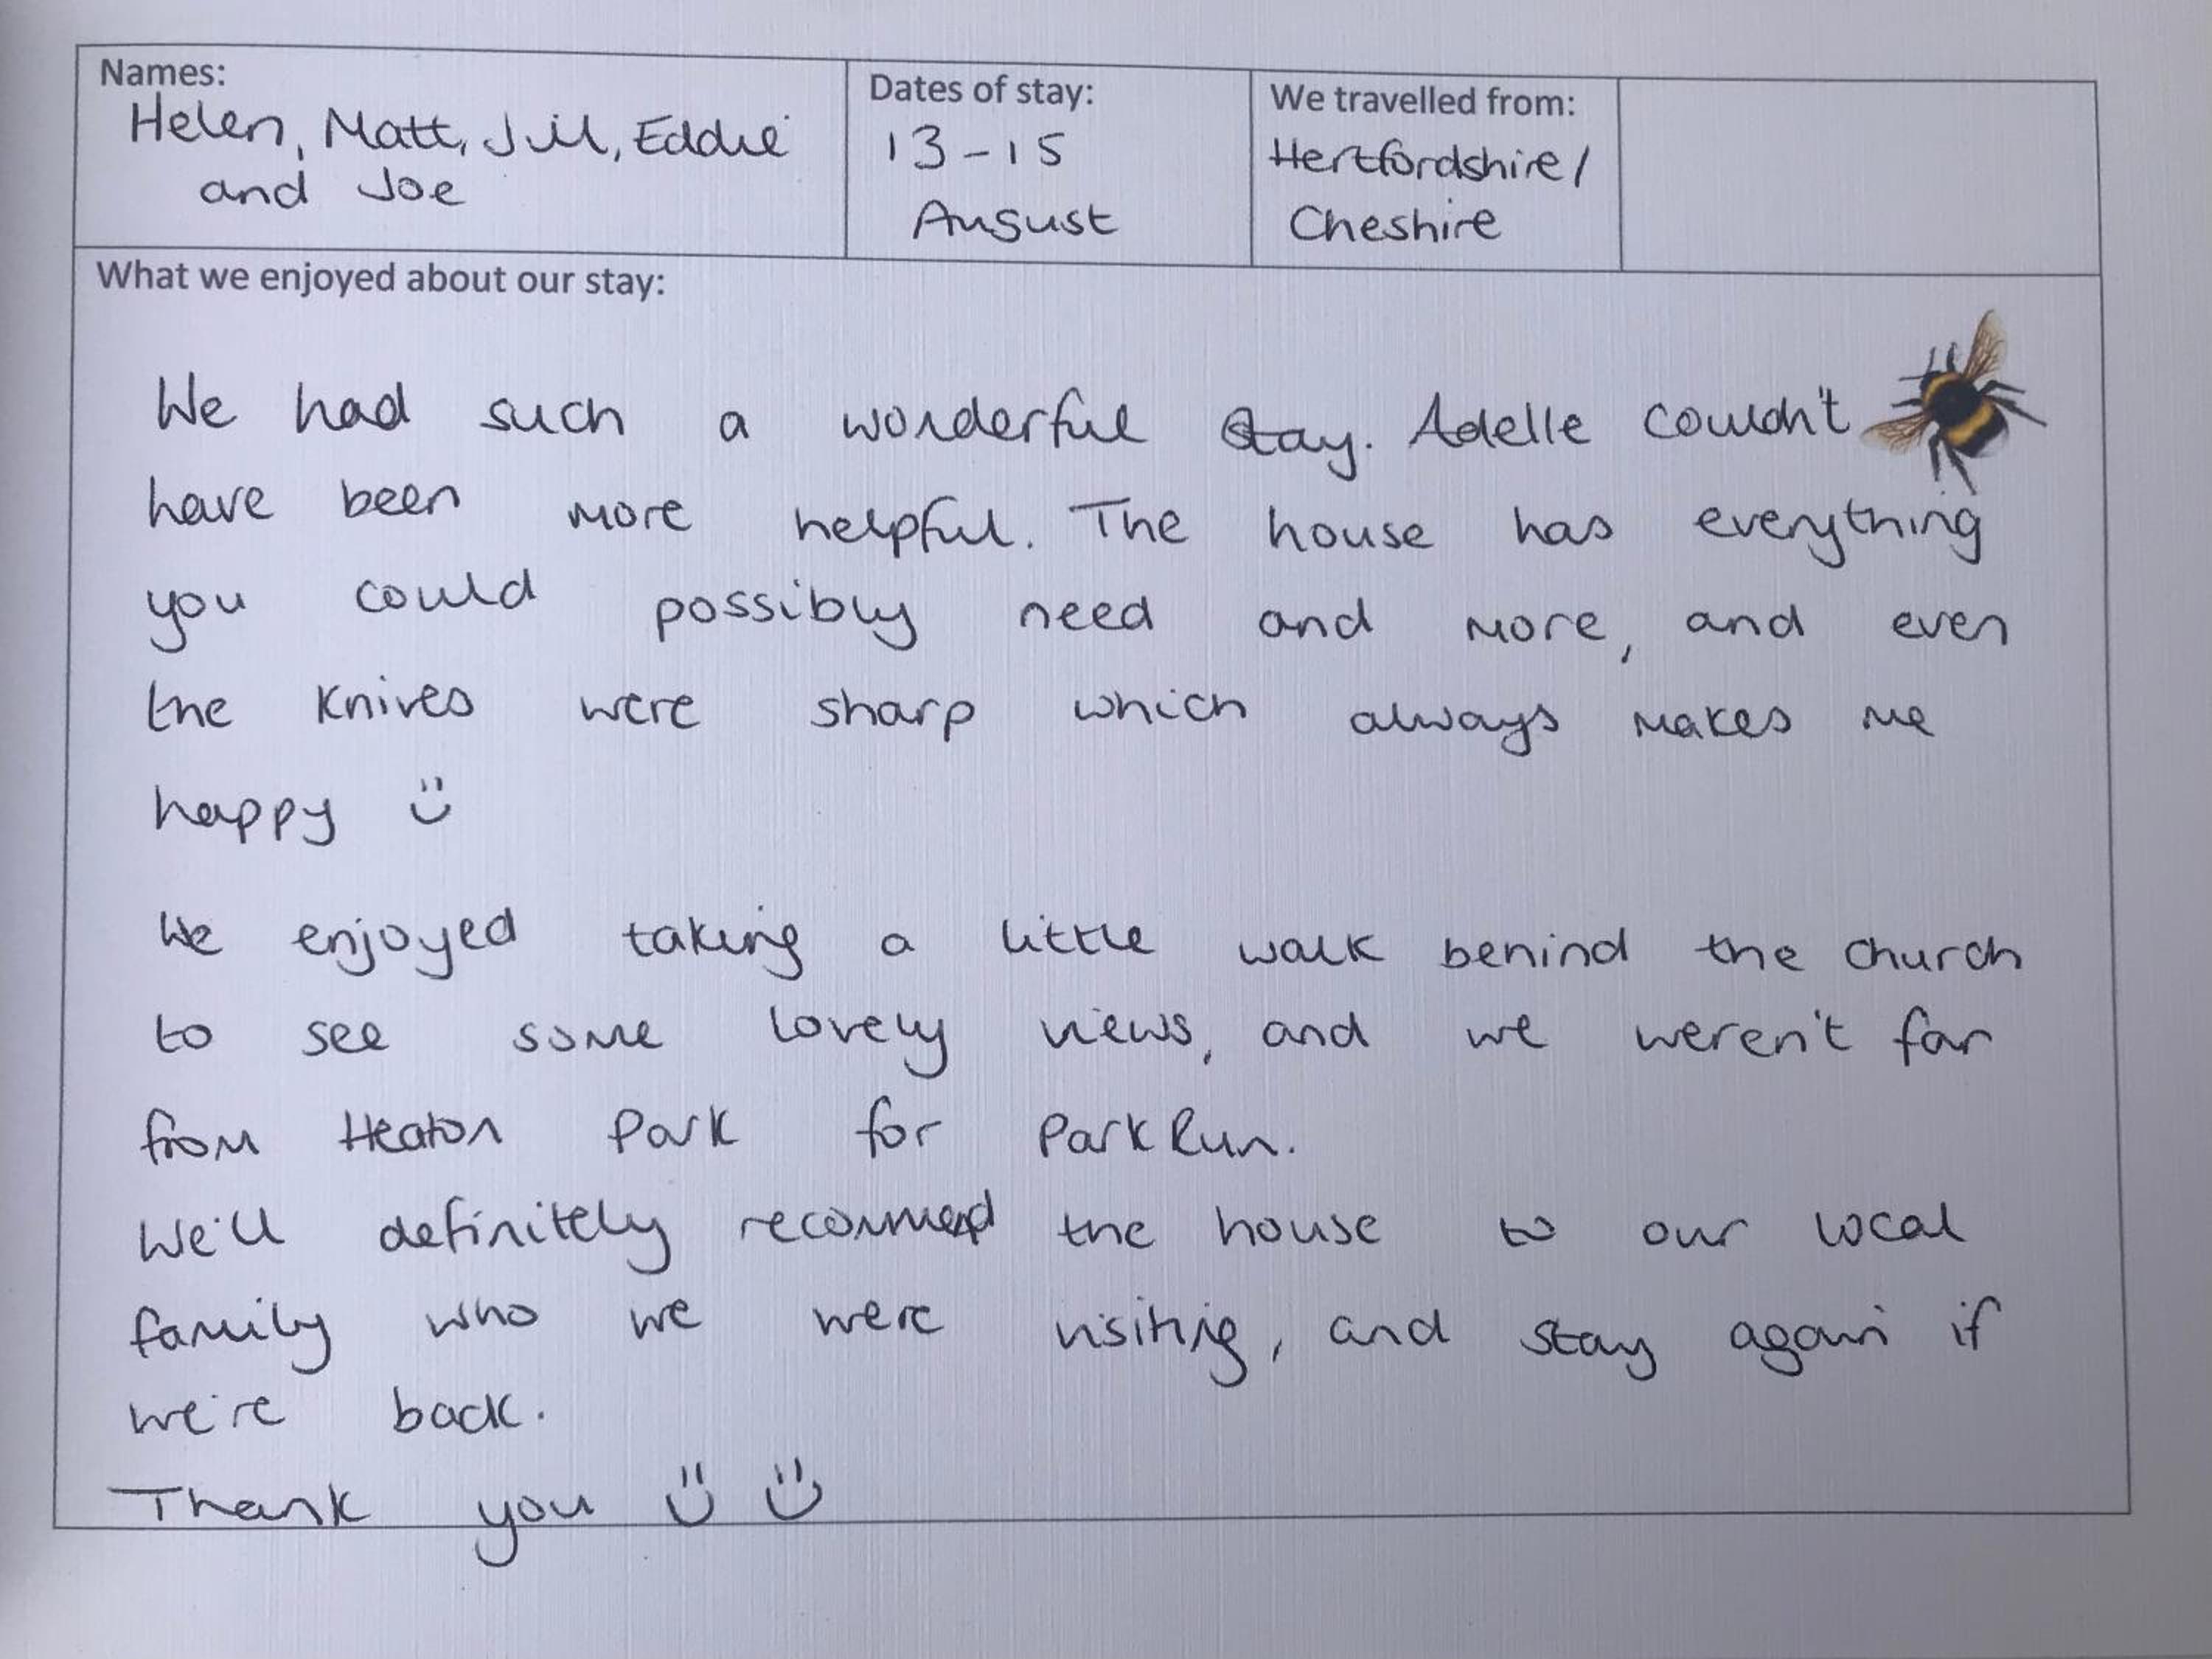 Names:
Helen, Matt, Jill, Eddie
and Joe
Dates of stay:
13-15
August
We travelled from:
Hertfordshire/
Cheshire
What we enjoyed about our stay:
We had such a wonderful stay. Adelle couldn't
have been more helpful. The house has everything
you could possibly need and more, and even
the knives were sharp which always makes me
happy :)
We enjoyed taking a little walk behind the church
to see some lovely views, and we weren't far
from Heaton Park for ParkRun.
We'll definitely recommend the house to our local
family who we were visiting, and stay again if
we're back.
Thank you :) :)